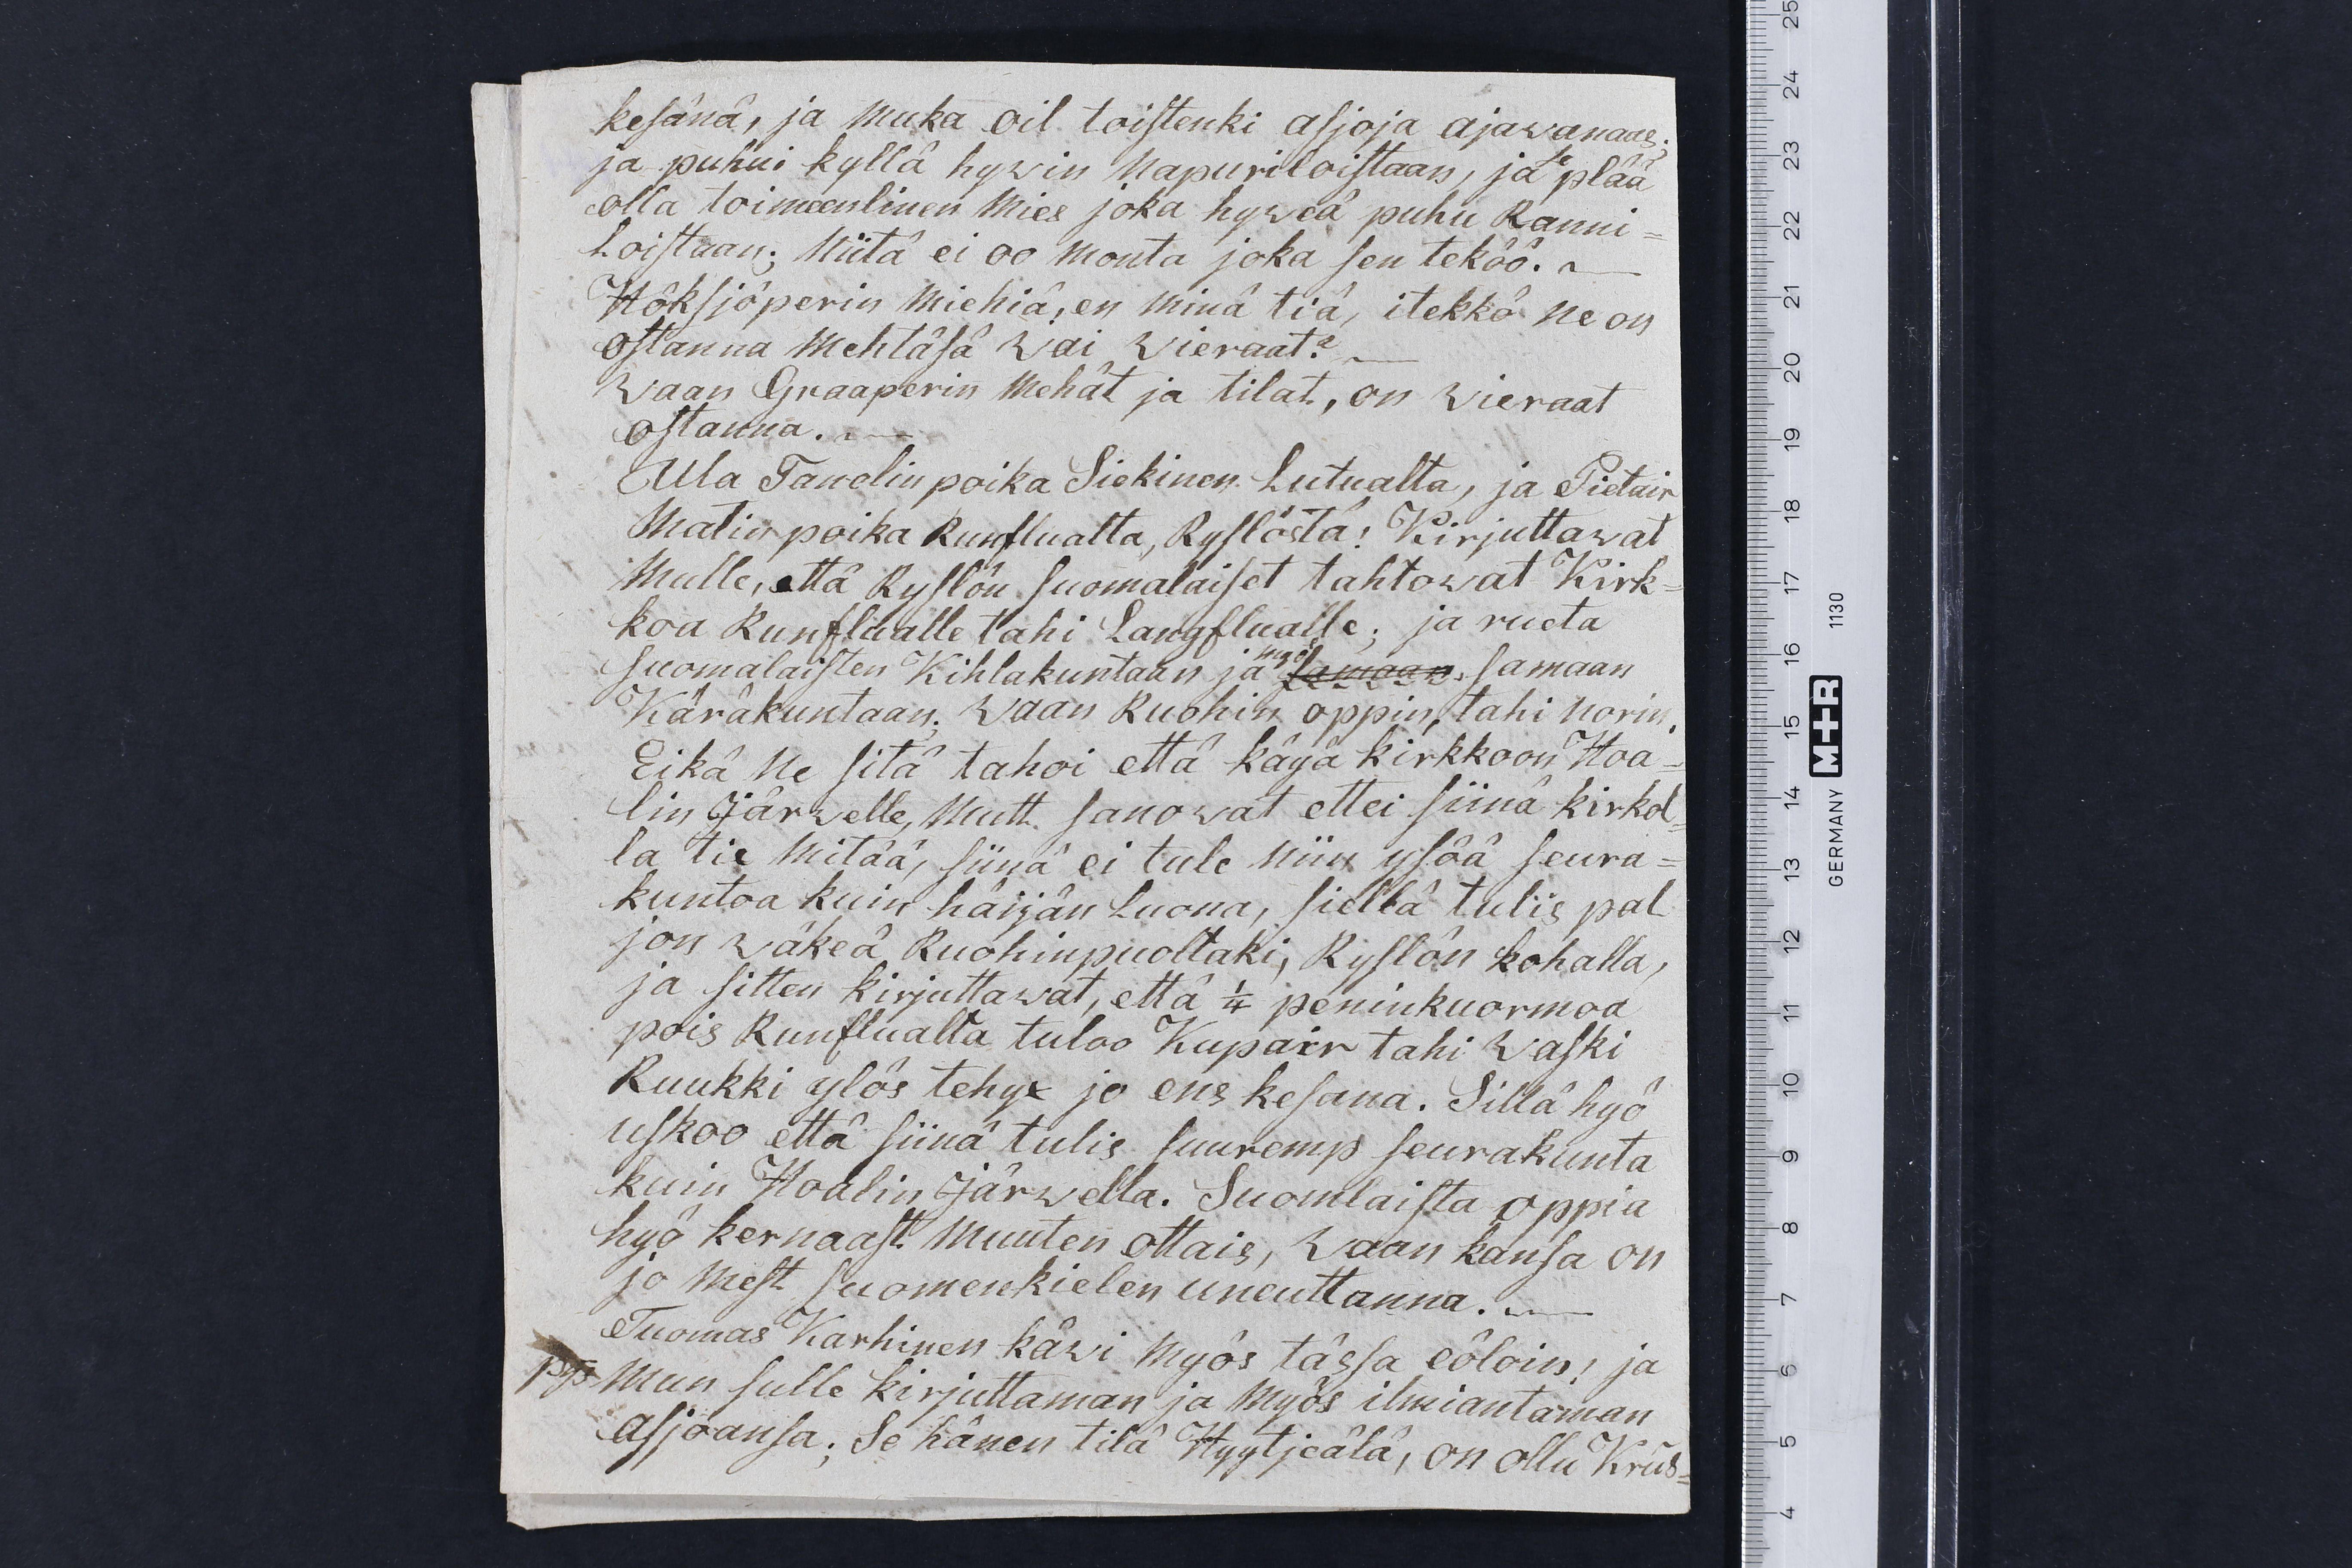 kesänä, ja muka oil toistenki asjoja ajavanaas;
ja puhui kyllä hywin Napuriloistaan, ja se plää
olla toimeenlinen Mies joka hyweä puhu Ranni=
loistaan; Niitä ei oo Monta joka sen teköö. —
Höksjöperin Miehiä, en Minä tiä, itekkö Ne on
ostanna Mehtäsä Wai Wieraat? —
Waan Graaperin Mehät ja tilat, on Wieraat
ostanna. —
Ulla Tanelin poika Siekinen Lutualta, ja Pietair
Matin poika Runflualta, Ryslöstä! Kirjuttawat
Mulle, että Ryslön suomalaiset tahtowat Kirk=
koa Runflualle tahi Langflualle; ja rueta
suomalaisten Kihlakuntaan ja myö samaan samaan
Käräkuntaan; Waan Ruohin oppin, tahi Norin.
Eikä Ne sitä tahoi että käyä kirkkoon Hoa=
lin Järwelle, Mutt sanowat ettei siinä kirkol=
la tie Mitää, siinä ei tule Niin ysöä seura=
kuntoa kuin häijän Luona, siellä tulis pal
jon wäkeä Ruohinpuoltaki, Ryslön kohalla,
ja sitten kirjuttawat, että 1/4 peninkuormoa
pois Runflualta tuloo Kupair tahi Waski
Ruukki ylös tehyx jo ens kesana. Sillä hyö
uskoo että siinä tulis suuremp seurakunta
kuin Hoalin Järwella. Suomlaista oppia
hyö kernaast Muuten ottais, Waan kansa on
jo Mest suomenkielen uneuttanna. —
Tuomas Karhinen käwi Myös tässa eöloin! ja
pyys Mun sulle kirjuttaman ja Myös ilmiantaman
Asjoansa; Se hänen tilä Hyytjeälä, on ollu Krus=
4 5 6 7 8 9 10 11 12 13 14 15 16 17 18 19 20 21 22 23 24 25
GERMANY M+R 1130